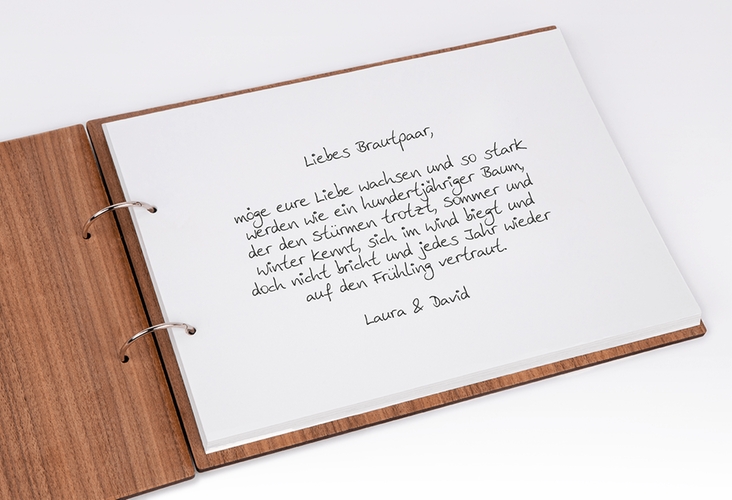 Liebes Brautpaar,
möge eure Liebe wachsen und so stark
werden wie ein hundertjähriger Baum,
der den Stürmen trotzt, Sommer und
Winter kennt, sich im Wind biegt und
doch nicht bricht und jedes Jahr wieder
auf den Frühling vertraut.
Laura & David